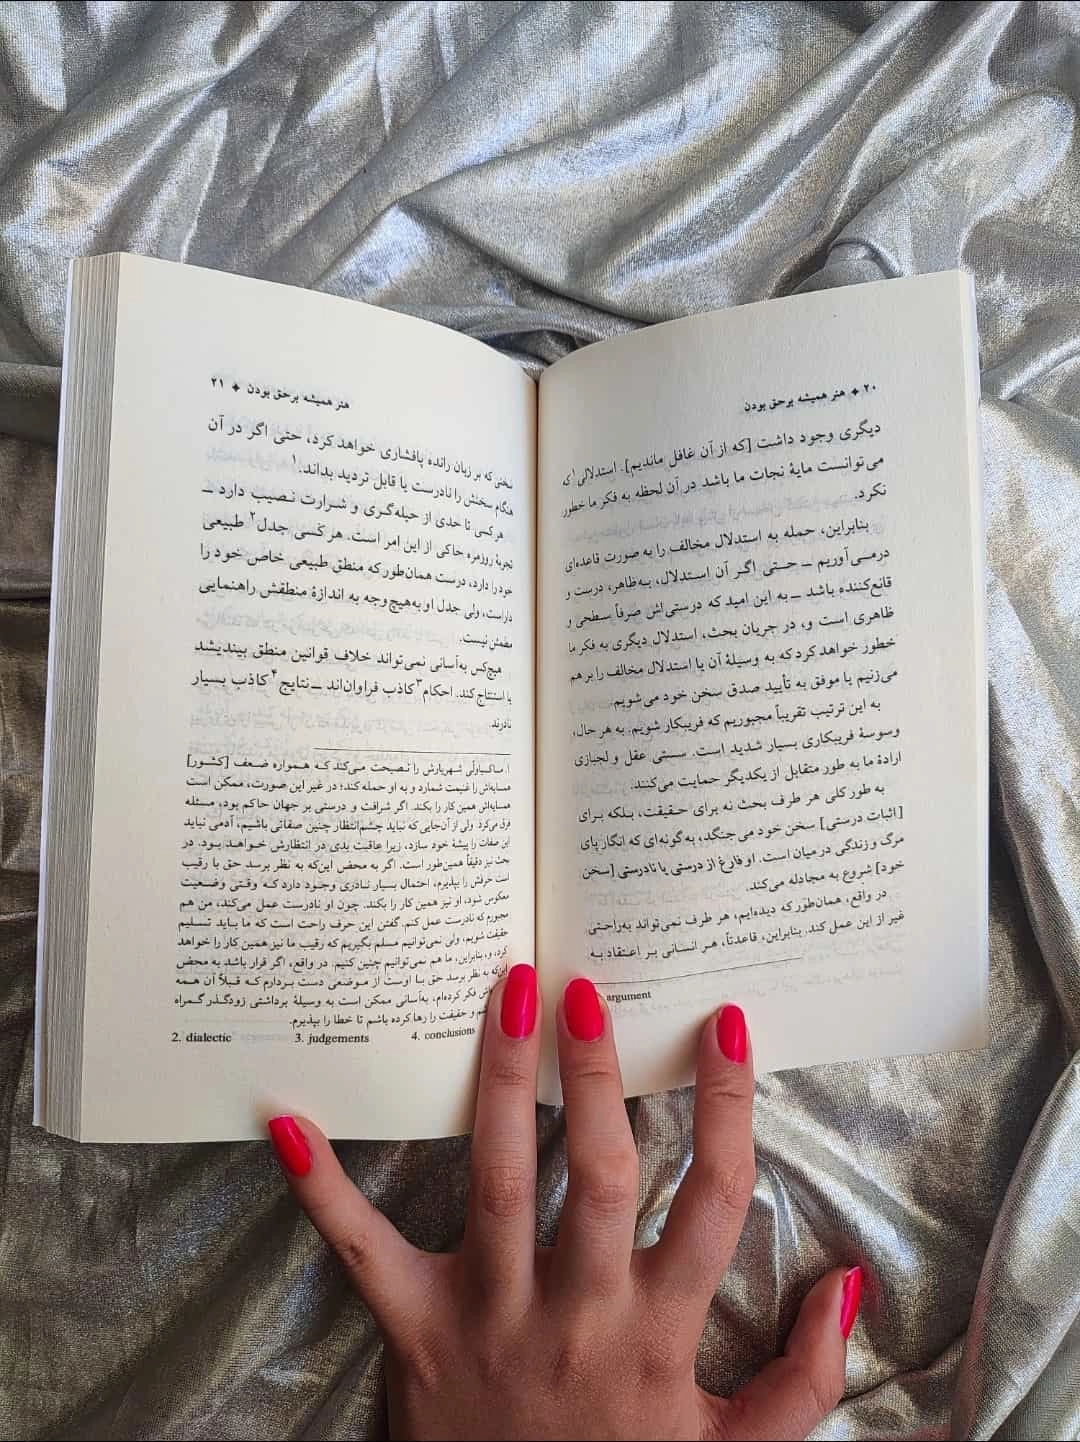 ۲۰ ✦ هنر همیشه برحق بودن
دیگری وجود داشت [که از آن غافل ماندیم]. استدلالی که
می‌توانست مایهٔ نجات ما باشد در آن لحظه به فکر ما خطور
نکرد.
بنابراین، حمله به استدلال مخالف را به صورت قاعده‌ای
درمی‌آوریم ــ حتی اگر آن استدلال، به‌ظاهر، درست و
قانع‌کننده باشد ــ به این امید که درستی‌اش صرفاً سطحی و
ظاهری است و، در جریان بحث، استدلال دیگری به فکر ما
خطور خواهد کرد که به وسیلهٔ آن یا استدلال مخالف را بر هم
می‌زنیم یا موفق به تأیید صدق سخن خود می‌شویم.
به این ترتیب تقریباً مجبوریم که فریبکار شویم. به هر حال،
وسوسهٔ فریبکاری بسیار شدید است. سستی عقل و لجبازی
ارادهٔ ما به طور متقابل از یکدیگر حمایت می‌کنند.
به طور کلی هر طرف بحث نه برای حقیقت، بلکه برای
[اثبات درستی] سخن خود می‌جنگد، به‌گونه‌ای که انگار پای
مرگ و زندگی در میان است. او فارغ از درستی یا نادرستی [سخن
خود] شروع به مجادله می‌کند.
در واقع، همان‌طور که دیده‌ایم، هر طرف نمی‌تواند به‌راحتی
غیر از این عمل کند. بنابراین، قاعدتاً، هر انسانی بر اعتقاد به
argument
هنر همیشه برحق بودن ✦ ۲۱
سخنی که بر زبان رانده پافشاری خواهد کرد، حتی اگر در آن
هنگام سخنش را نادرست یا قابل تردید بداند.۱
هر کسی تا حدی از حیله‌گری و شرارت نصیب دارد ــ
تجربهٔ روزمره حاکی از این امر است. هر کسی جدل۲ طبیعی
خود را دارد، درست همان‌طور که منطق طبیعی خاص خود را
داراست، ولی جدل او به‌هیچ‌وجه به اندازهٔ منطقش راهنمایی
مطمئن نیست.
هیچ‌کس به‌آسانی نمی‌تواند خلاف قوانین منطق بیندیشد
یا استنتاج کند. احکام۳ کاذب فراوان‌اند ــ نتایج۴ کاذب بسیار
نادرند.
۱. ماکیاولّی شهریارش را نصیحت می‌کند که همواره ضعف [کشور]
همسایه‌اش را غنیمت شمارد و به او حمله کند؛ در غیر این صورت، ممکن است
همسایه‌اش همین کار را بکند. اگر شرافت و درستی بر جهان حاکم بود، مسئله
فرق می‌کرد. ولی از آن‌جایی که نباید چشم‌انتظار چنین صفاتی باشیم، آدمی نباید
این صفات را پیشهٔ خود سازد، زیرا عاقبت بدی در انتظارش خواهد بود. در
بحث نیز دقیقاً همین‌طور است. اگر به محض این‌که به نظر برسد حق با رقیب
است حرفش را بپذیرم، احتمال بسیار نادری وجود دارد که وقتی وضعیت
معکوس شود، او نیز همین کار را بکند. چون او نادرست عمل می‌کند، من هم
مجبورم که نادرست عمل کنم. گفتن این حرف راحت است که ما باید تسلیم
حقیقت شویم، ولی نمی‌توانیم مسلم بگیریم که رقیب ما نیز همین کار را خواهد
کرد، و، بنابراین، ما هم نمی‌توانیم چنین کنیم. در واقع، اگر قرار باشد به محض
این‌که به نظر برسد حق با اوست از موضعی دست بردارم که قبلاً آن همه
فکر کرده‌ام، به‌آسانی ممکن است به وسیلهٔ برداشتی زودگذر گمراه
و حقیقت را رها کرده باشم تا خطا را بپذیرم.
2. dialectic 3. judgements 4. conclusions